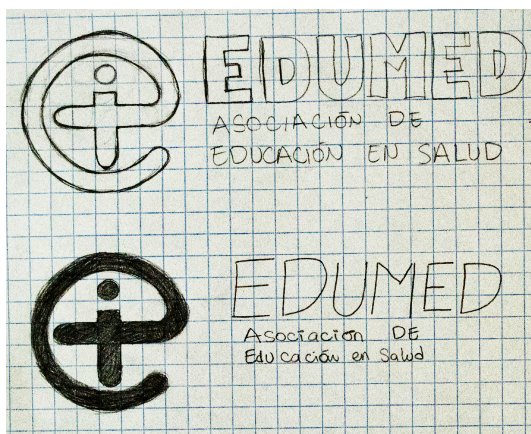 EDUMED
ASOCIACIÓN DE
EDUCACIÓN EN SALUD
EDUMED
Asociación DE
Educación en Salud